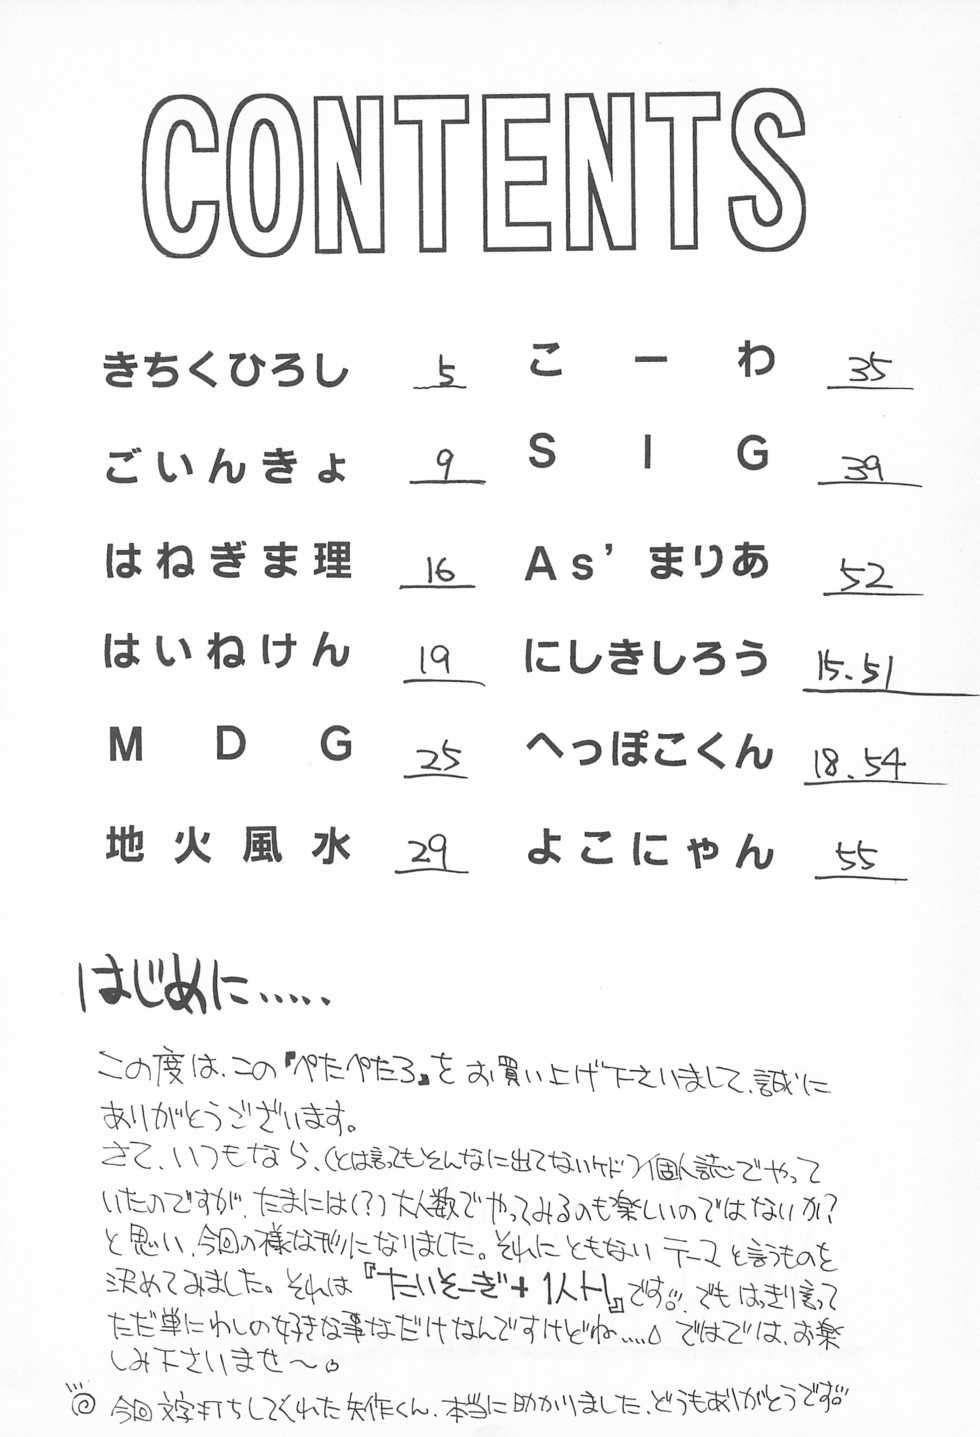 CONTENTS
きちくひろし 5
ごいんきょ 9
はねぎま理 16
はいねけん 19
MDG 25
地火風水 29
こーわ 35
SIG 39
As'まりあ 52
にしきしろう 15.51
へっぽこくん 18.54
よこにゃん 55
はじめに.....
この度は、この『ぺたぺたろ』をお買い上げ下さいまして、誠に
ありがとうございます。
さて、いつもなら、(とは言ってもそんなに出てないケド)個人誌でやって
いたのですが、たまには(?)大人数でやってみるのも楽しいのではないか?
と思い、今回の様な形になりました。それにともない テーマと言うものを
決めてみました。それは『たいそーぎ+』です。でもはっきり言って
ただ単にわしの好きな事なだけなんですけどね....。ではでは、お楽
しみ下さいませ〜。
今回文字打ちしてくれた矢作くん、本当に助かりました、どうもありがとうです。